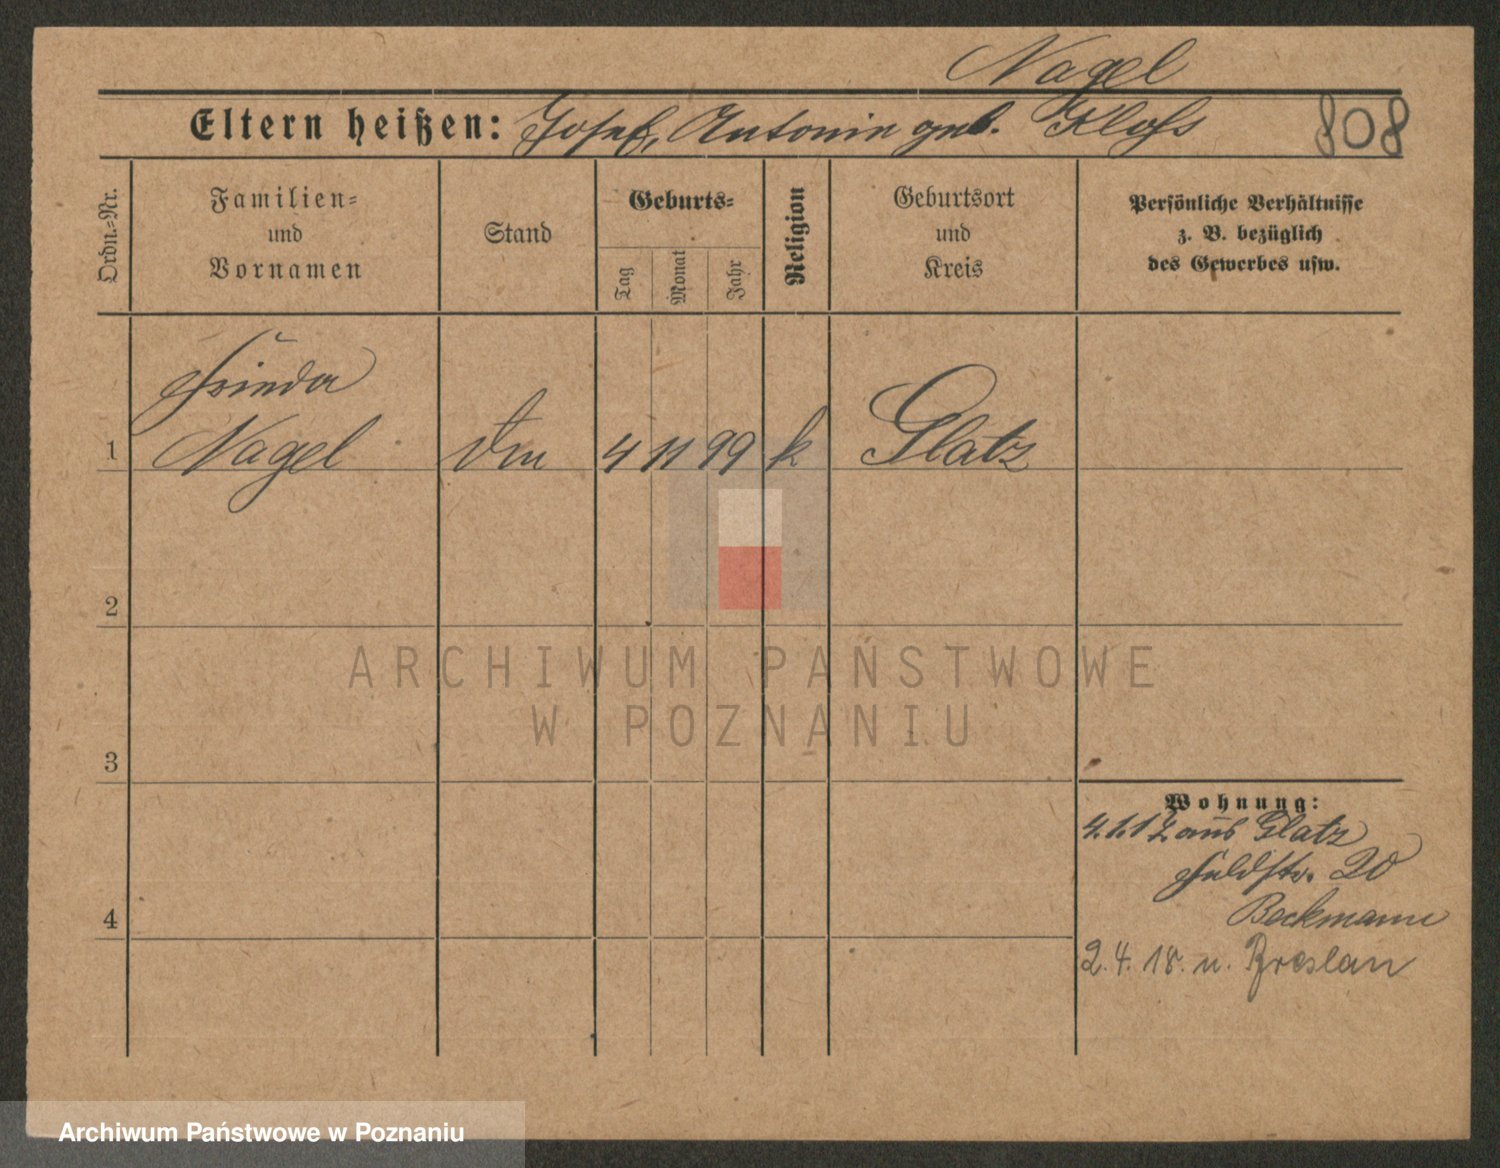 Nagel
Eltern heißen: Josef, Antonie geb. Kloß
808
Ordn.-Nr.
Familien-
und
Vornamen
Stand
Geburts-
Tag
Monat
Jahr
Religion
Geburtsort
und
Kreis
Persönliche Verhältnisse
z. B. bezüglich
des Gewerbes usw.
Frieda
1 Nagel 4 11 99 k Glatz
2
ARCHIWUM PAŃSTWOWE
W POZNANIU
3
Wohnung:
4.1.17 aus Glatz
Feldstr. 20
Beckmann
4
2.4.18. n. Breslau
Archiwum Państwowe w Poznaniu